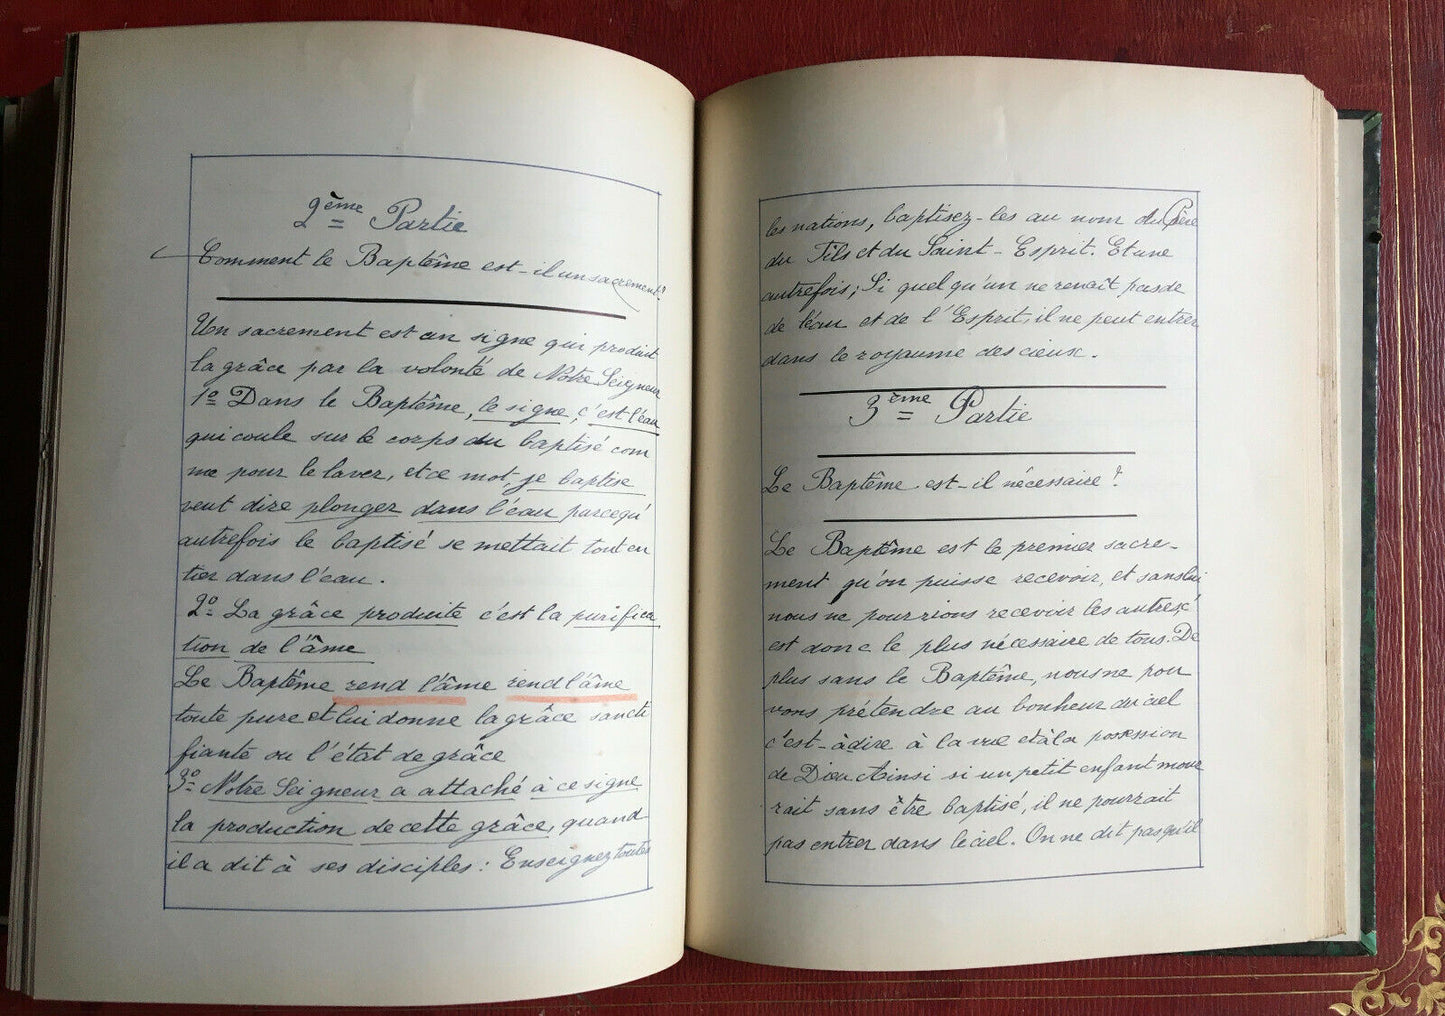 2ème Partie
Comment le Baptême est-il un sacrement?
Un sacrement est un signe qui produit
la grâce par la volonté de Notre Seigneur
1º Dans le Baptême, le signe, c'est l'eau
qui coule sur le corps du baptisé com
me pour le laver, et ce mot, je baptise
veut dire plonger dans l'eau parcequ'
autrefois le baptisé se mettait tout en
tier dans l'eau.
2º La grâce produite c'est la purifica
tion de l'âme
Le Baptême rend l'âme rend l'âme
toute pure et lui donne la grâce sancti
fiante ou l'état de grâce
3º Notre Seigneur a attaché à ce signe
la production de cette grâce, quand
il a dit à ses disciples : Enseignez toutes
les nations, baptisez-les au nom du Père
du Fils et du Saint-Esprit. Et une
autrefois; Si quelqu'un ne renaît pas de
de l'eau et de l'Esprit, il ne peut entrer
dans le royaume des cieux.
3ème Partie
Le Baptême est-il nécessaire?
Le Baptême est le premier sacre-
ment qu'on puisse recevoir, et sans lui
nous ne pourrions recevoir les autres c'
est donc le plus nécessaire de tous. De
plus sans le Baptême, nous ne pou
vons prétendre au bonheur du ciel
c'est-à dire à la vue et à la possession
de Dieu Ainsi si un petit enfant mour
rait sans être baptisé, il ne pourrait
pas entrer dans le ciel. On ne dit pas qu'il